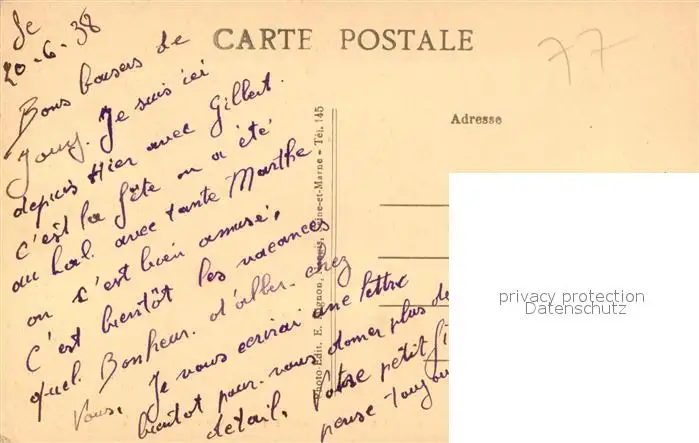 le
20-6-38
CARTE POSTALE
77
Bons baisers de
Jouy. Je suis ici
depuis Hier avec Gilbert.
c'est la fête on a été
au bal. avec tante Marthe
on s'est bien amusé,
C'est bientôt les vacances
quel. Bonheur. d'aller. chez
Vous, Je vous ecrirai une lettre
bientot pour. vous donner plus de
détail. Votre petit
pense toujou
Adresse
Photo-Edit. E. Mignon, Seine-et-Marne - Tél. 145
privacy protection
Datenschutz